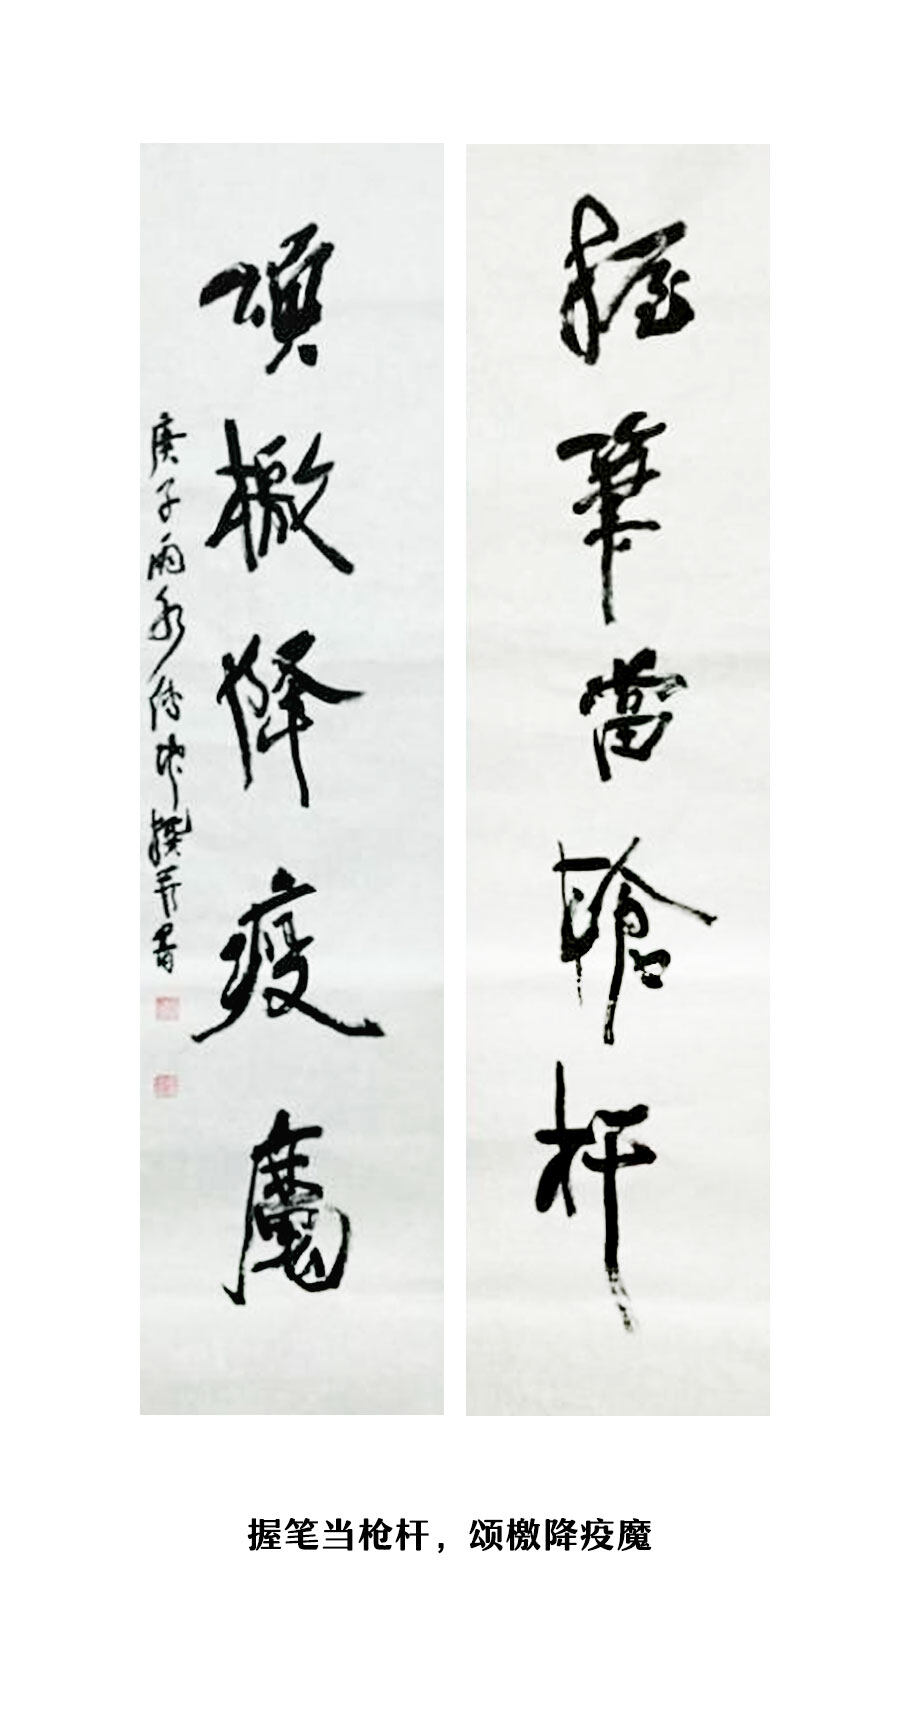 握筆當槍杆
頌檄降疫魔
庚子雨水傳忠撰并書
握笔当枪杆，颂檄降疫魔